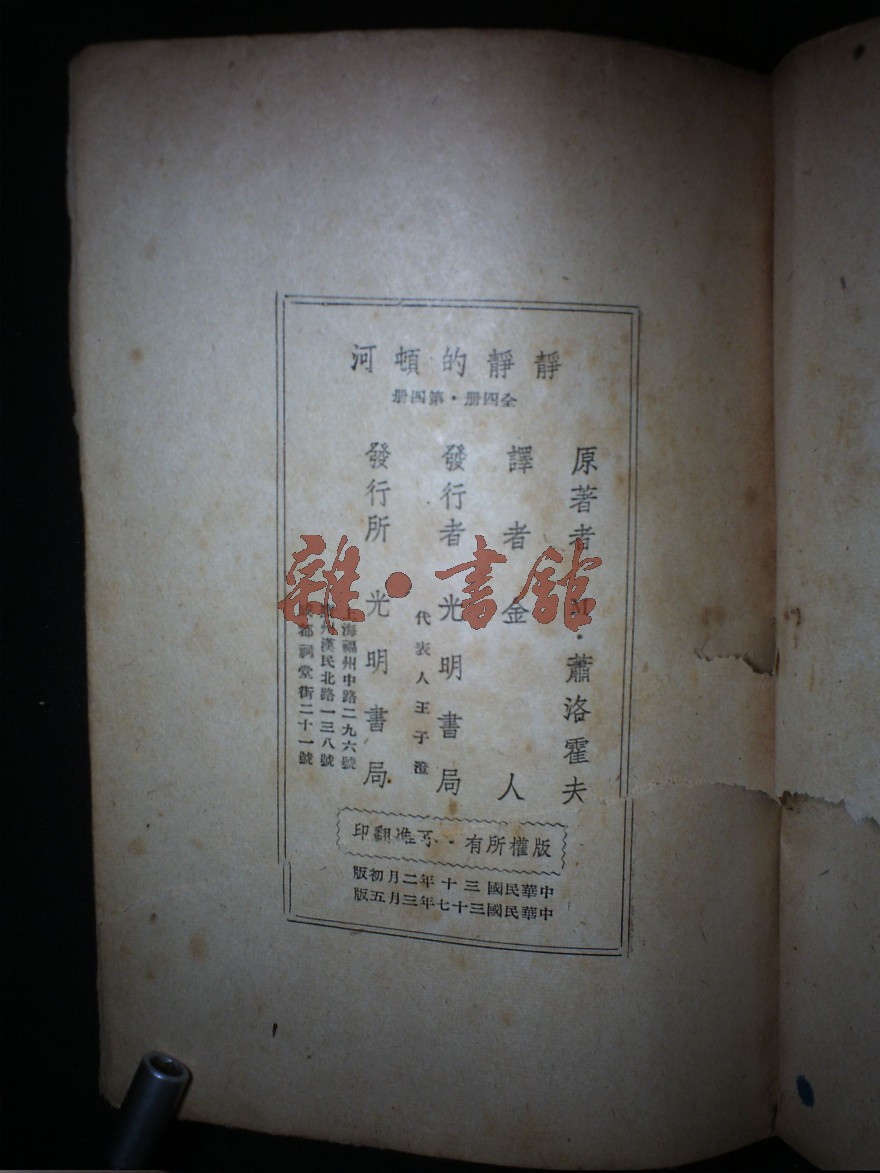 靜靜的頓河
全四冊・第四冊
原著者 M・蕭洛霍夫
譯者 金人
發行者 光明書局
代表人王子澄
發行所 光明書局
上海福州中路二九六號
廣州漢民北路一三八號
成都祠堂街二十一號
版權所有・不准翻印
中華民國三十年二月初版
中華民國三十七年三月五版
雜・書館